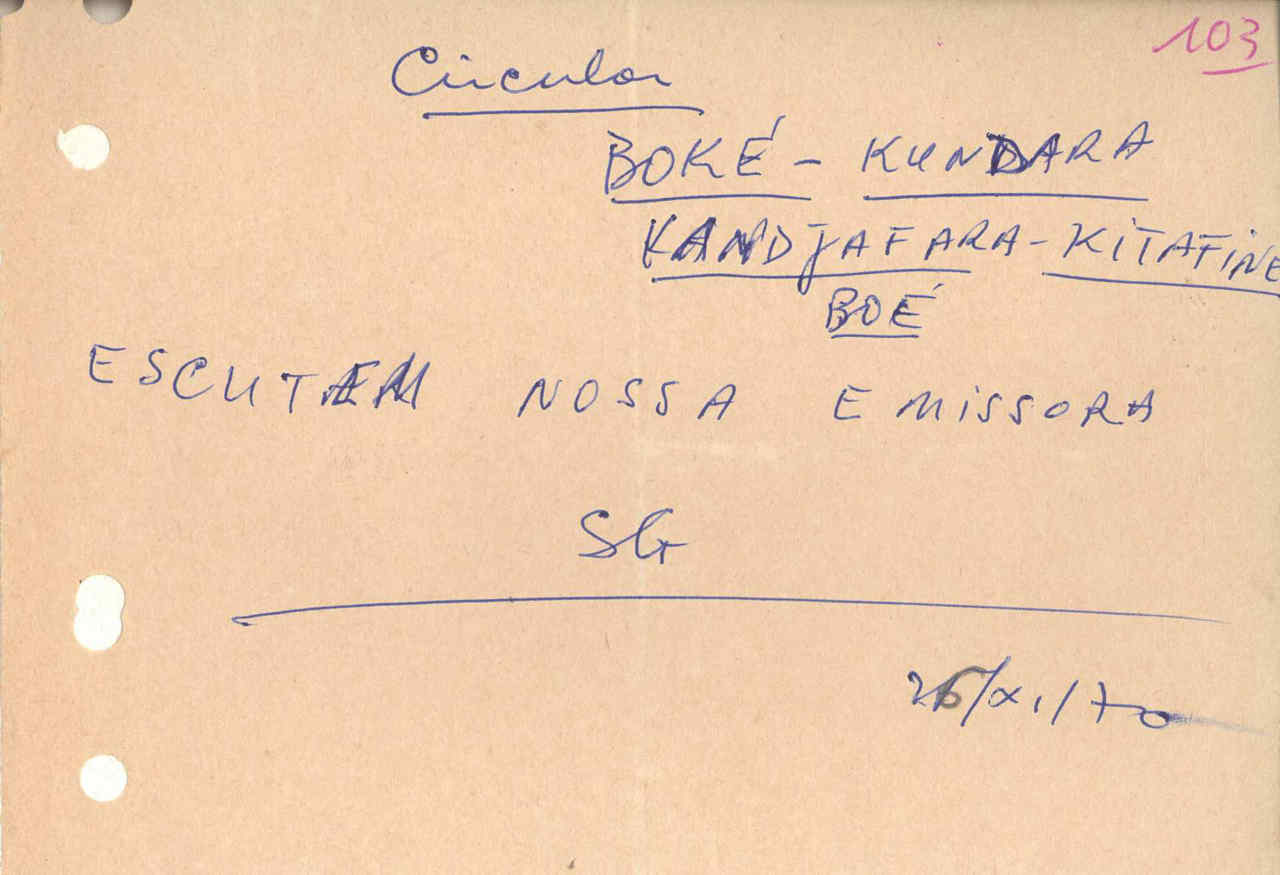 103
Circular
BOKÉ - KUNDARA
KANDJAFARA - KITAFINE
BOÉ
ESCUTEM NOSSA EMISSORA
SG
26/XI/70